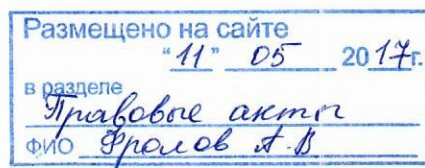 Размещено на сайте
"11" 05 2017г.
в разделе
Правовые акты
ФИО Фролов А.В